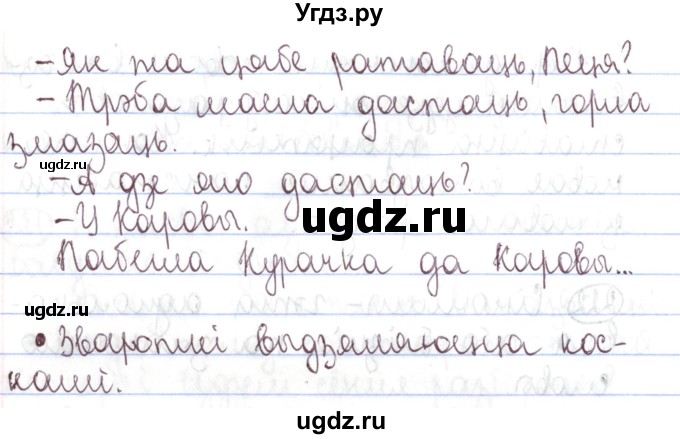 Угдз.ру
– Як жа цябе ратаваць, Пеця?
– Трэба масла дастаць, горла
змазаць.
gdz.ru
ugdz.ru
– А дзе яго дастаць?
ugdz.ru
– У Каровы.
ugdz.ru
Пабегла Курачка да Каровы...
ugdz.ru
• Звароткі выдзяляюцца кос-
камі.
ugdz.ru
ugdz.ru